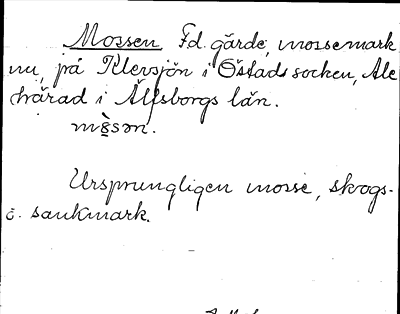 Mossen Fd. gärde, mossemark
nu, på Klevsjön i Östads socken, Ale
härad i Älfsborgs län.
mòsən.
Ursprungligen mosse, skogs-
o. sankmark.